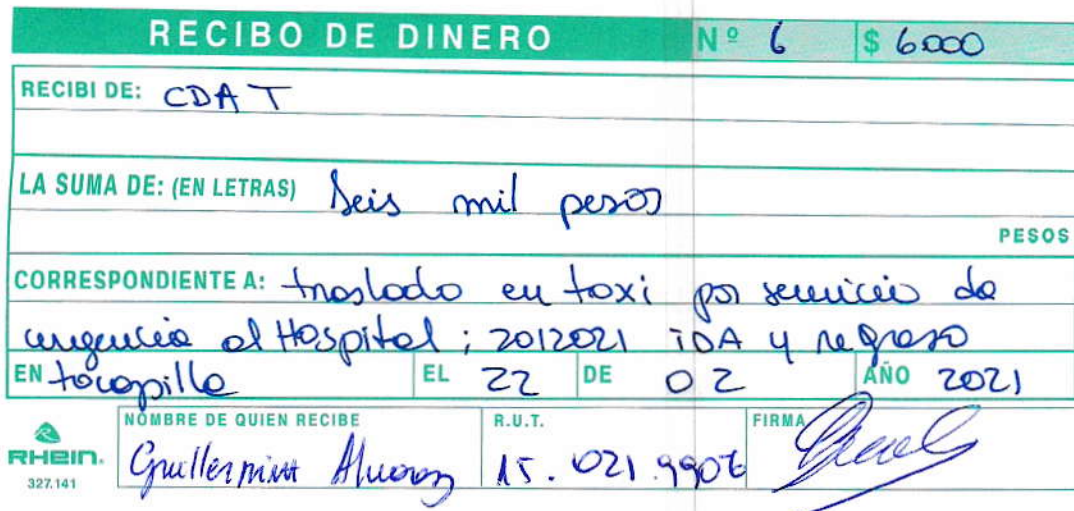 RECIBO DE DINERO Nº 6 $ 6.000
RECIBI DE: CDA T
LA SUMA DE: (EN LETRAS) Seis mil pesos
PESOS
CORRESPONDIENTE A: traslado en taxi por servicio de
urgencia al Hospital; 20122021 iDA y regreso
EN tocopilla EL 22 DE 02 AÑO 2021
NOMBRE DE QUIEN RECIBE R.U.T. FIRMA
RHEIN. Guillermina 15.021.990
327.141